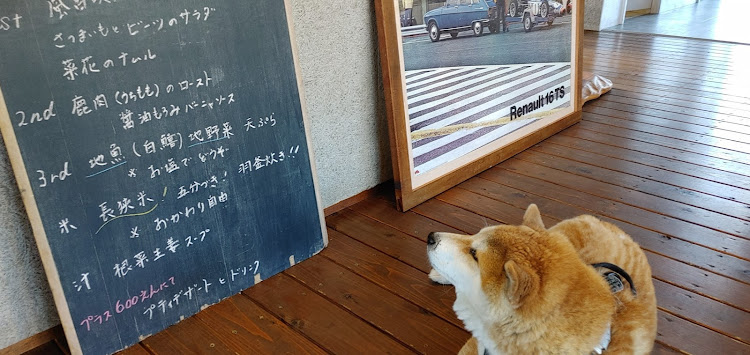 1st 風
さつまいもとビーンツのサラダ
菜花のナムル
2nd 鹿肉(うちもも)のロースト
醤油もろみバーニャソース
3rd 地魚(白鱚)地野菜 天ぷら
※ お塩でどうぞ
米 長狭米! 五分づき! 羽釜炊き!!
※ おかわり自由
汁 根菜生姜スープ
プラス600えんにて
プティデザートとドリンク
Renault 16 TS